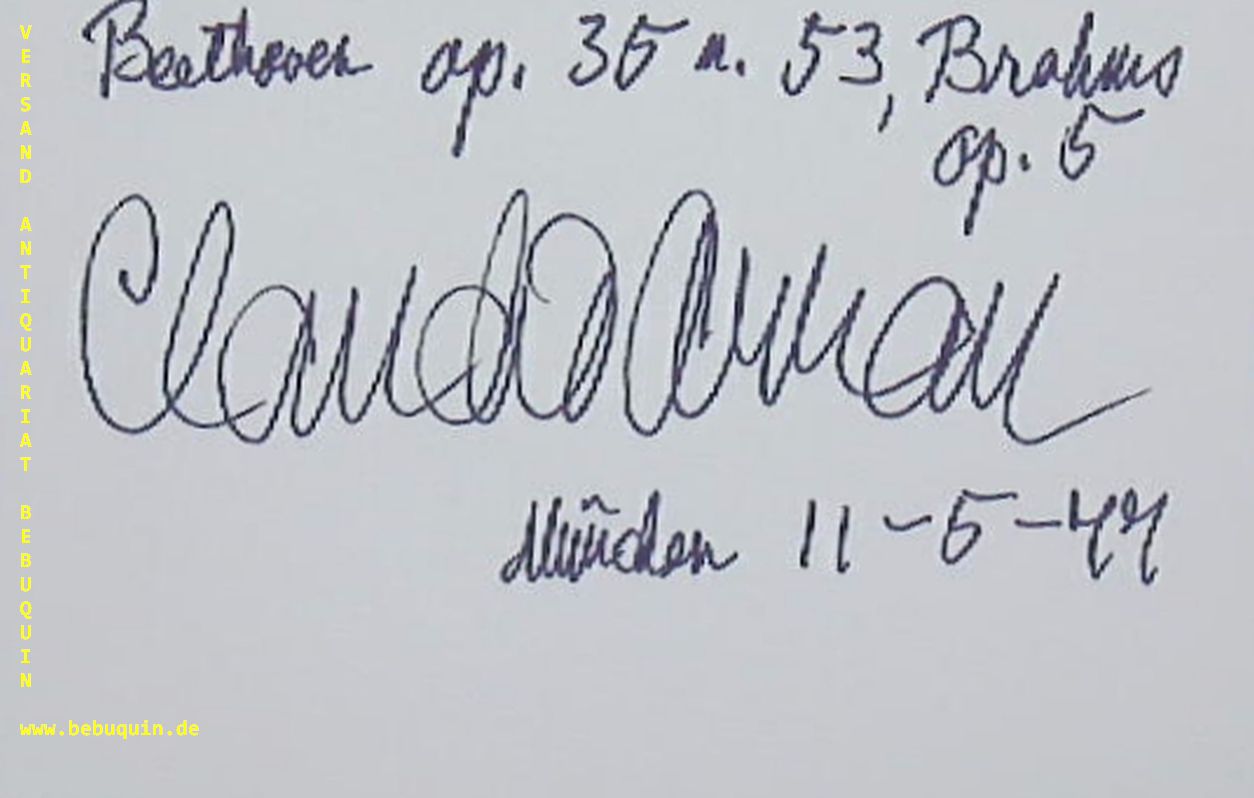 Beethoven op. 35 u. 53, Brahms
op. 5
Claudio Arrau
München 11-5-44
VERSAND ANTIQUARIAT BEBUQUIN
www.bebuquin.de